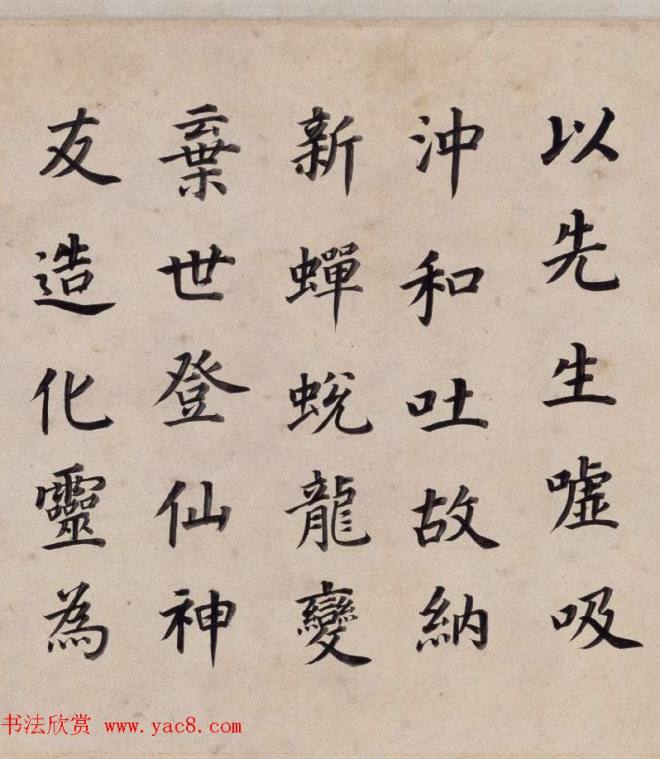 以先生噓吸
沖和吐故納
新蟬蛻龍變
棄世登仙神
友造化靈為
书法欣赏 www.yac8.com